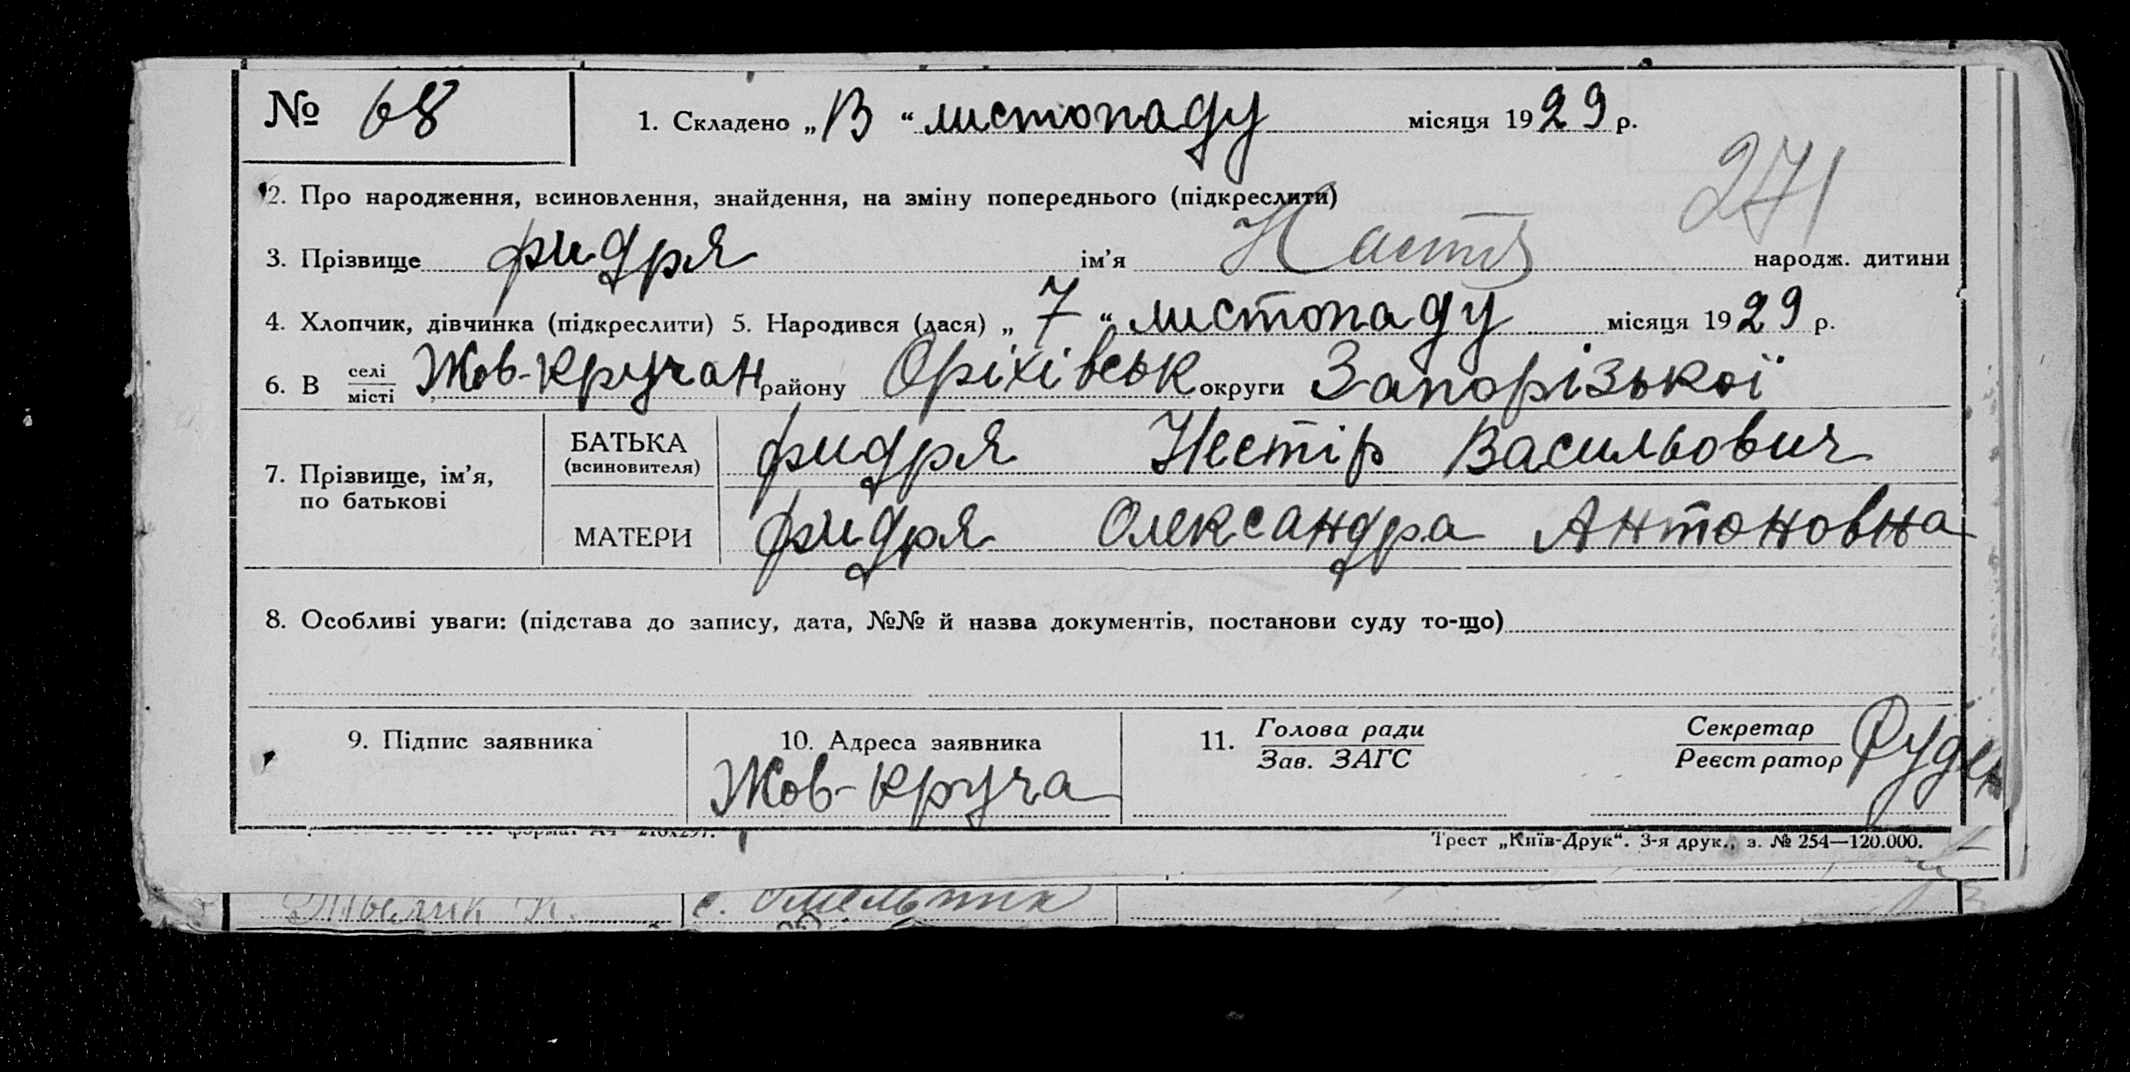 № 68 1. Складено „13“ листопаду місяця 1929 р.
271
2. Про народження, всиновлення, знайдення, на зміну попереднього (підкреслити)
3. Прізвище фидря ім'я Настя народж. дитини
4. Хлопчик, дівчинка (підкреслити) 5. Народився (лася) „7“ листопаду місяця 1929 р.
6. В селі місті Жов-кручан району Оріхівськ округи Запорізької
7. Прізвище, ім'я, по батькові
БАТЬКА (всиновителя) фидря Нестір Васильович
МАТЕРИ фидря Олександра Антоновна
8. Особливі уваги: (підстава до запису, дата, №№ й назва документів, постанови суду то-що)
9. Підпис заявника 10. Адреса заявника 11. Голова ради Секретар
Зав. ЗАГС Реєстратор
Жов-круча
формат А4 210х297.
Трест „Київ-Друк“. 3-я друк., з. № 254—120.000.
с. Омельник